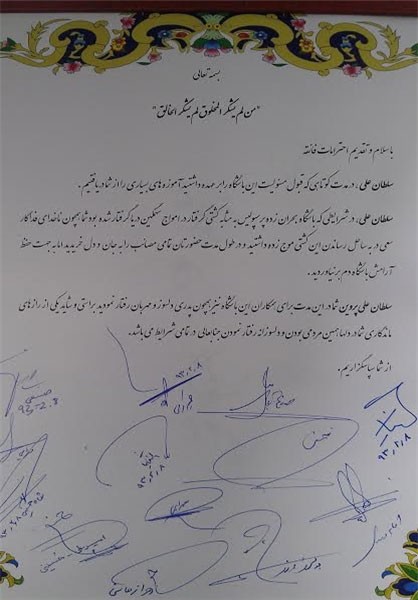 بسمه تعالی
"من لم یشکر المخلوق لم یشکر الخالق"
با سلام و تقدیم احترامات فائقه
سلطان علی، در مدت کوتاهی که قبول مسئولیت این باشگاه را بر عهده داشتید آموزه های بسیاری را از شما دریافتیم.
سلطان علی، در شرایطی که باشگاه بحران زده پرسپولیس به مثابه کشتی گرفتار در امواج سهمگین دریا گرفتار شده بود شما همچون ناخدای فداکار
سعی در به ساحل رساندن این کشتی موج زده داشتید و در طول مدت حضورتان تمامی مصائب را به جان و دل خریدید اما به جهت حفظ
آرامش باشگاه دم بر نیاوردید.
سلطان علی پروین شما در این مدت برای همکاران این باشگاه نیز همچون پدری دلسوز و مهربان رفتار نمودید براستی و شاید یکی از رازهای
ماندگاری شما در دلها همین مردمی بودن و دلسوزانه رفتار نمودن جنابعالی در تمامی شرایط می باشد.
از شما سپاسگزاریم.
۹۳,۲,۸
صمدی
۹۳-۲-۸
۹۳,۲,۸
۹۳,۲,۸